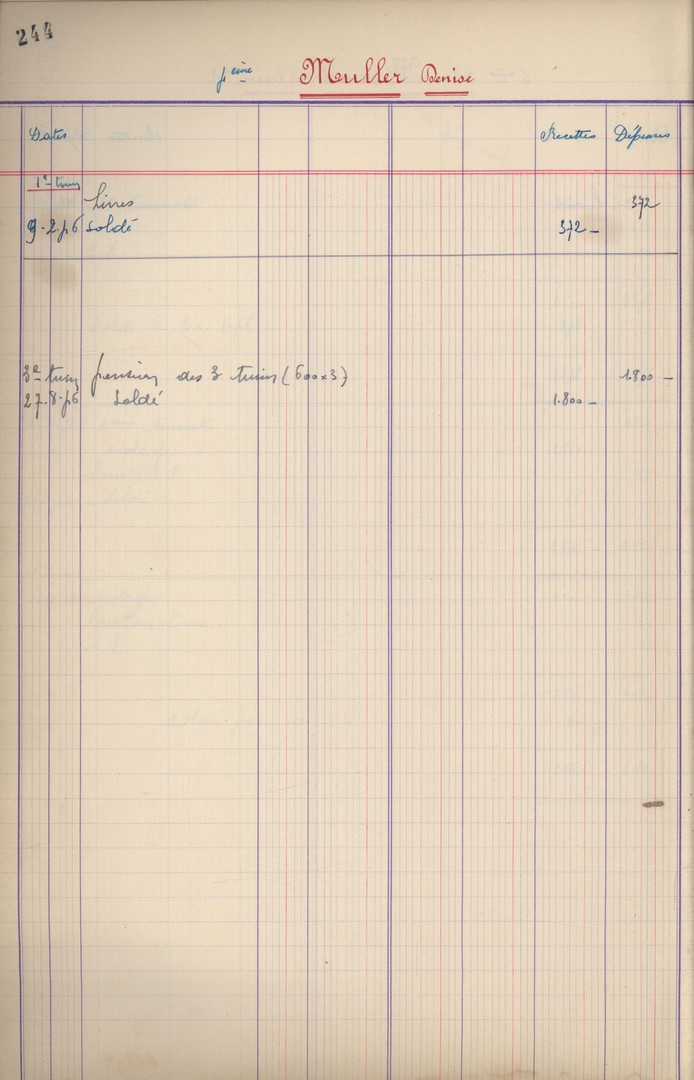 244
4ème Muller Denise
Dates Recettes Dépenses
1e trim
Livres 372
9.2.46 Soldé 372 -
3e trim pension des 3 trim (600x3) 1.800 -
27.8.46 Soldé 1.800 -